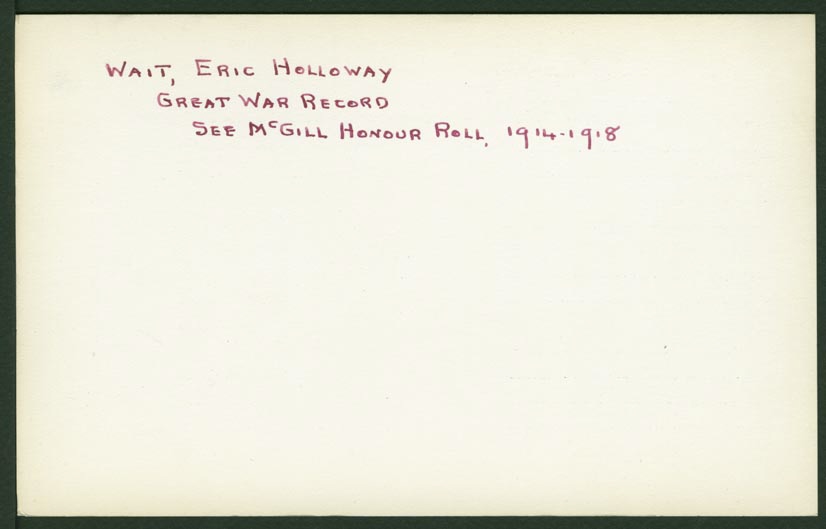 WAIT, ERIC HOLLOWAY
GREAT WAR RECORD
SEE McGILL HONOUR ROLL, 1914-1918